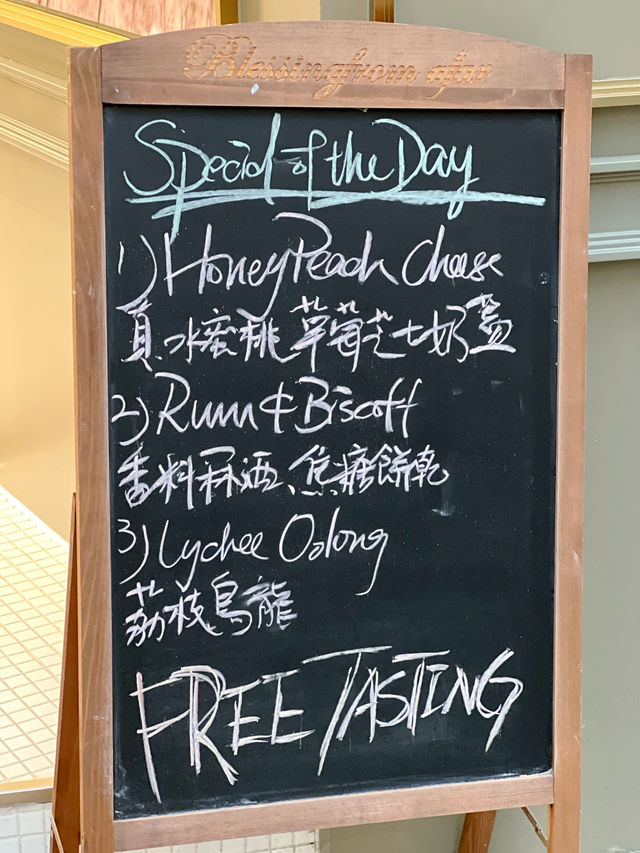 Blessing from afar
Special of the Day
1) Honey Peach Cheese
真水蜜桃草莓芝士奶蓋
2) Rum & Biscoff
香料冧酒、焦糖餅乾
3) Lychee Oolong
荔枝烏龍
FREE TASTING